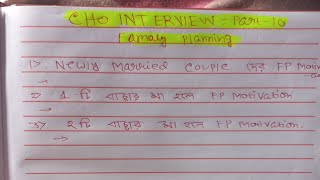 CHO INTERVIEW = Part-10
Famaly planning
1> Newly Married Couple দের FP Motiv
→
2> 1 টি বাচ্চার মা হলে FP Motivation
→
3> 2 টি বাচ্চার মা হলে FP Motivation.
→